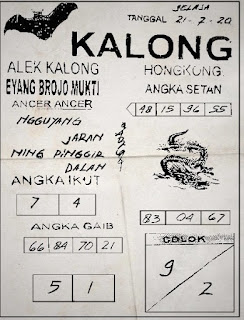 SELASA
TANGGAL 21-7-20
KALONG
ALEK KALONG
EYANG BROJO MUKTI
ANCER ANCER
NGGUYANG
JARAN
NING PINGGIR
DALAN
ANGKA IKUT
7 4
ANGKA GAIB
66 84 70 21
5 1
HONGKONG
ANGKA SETAN
48 15 96 55
83 04 67
COLOK
9
2